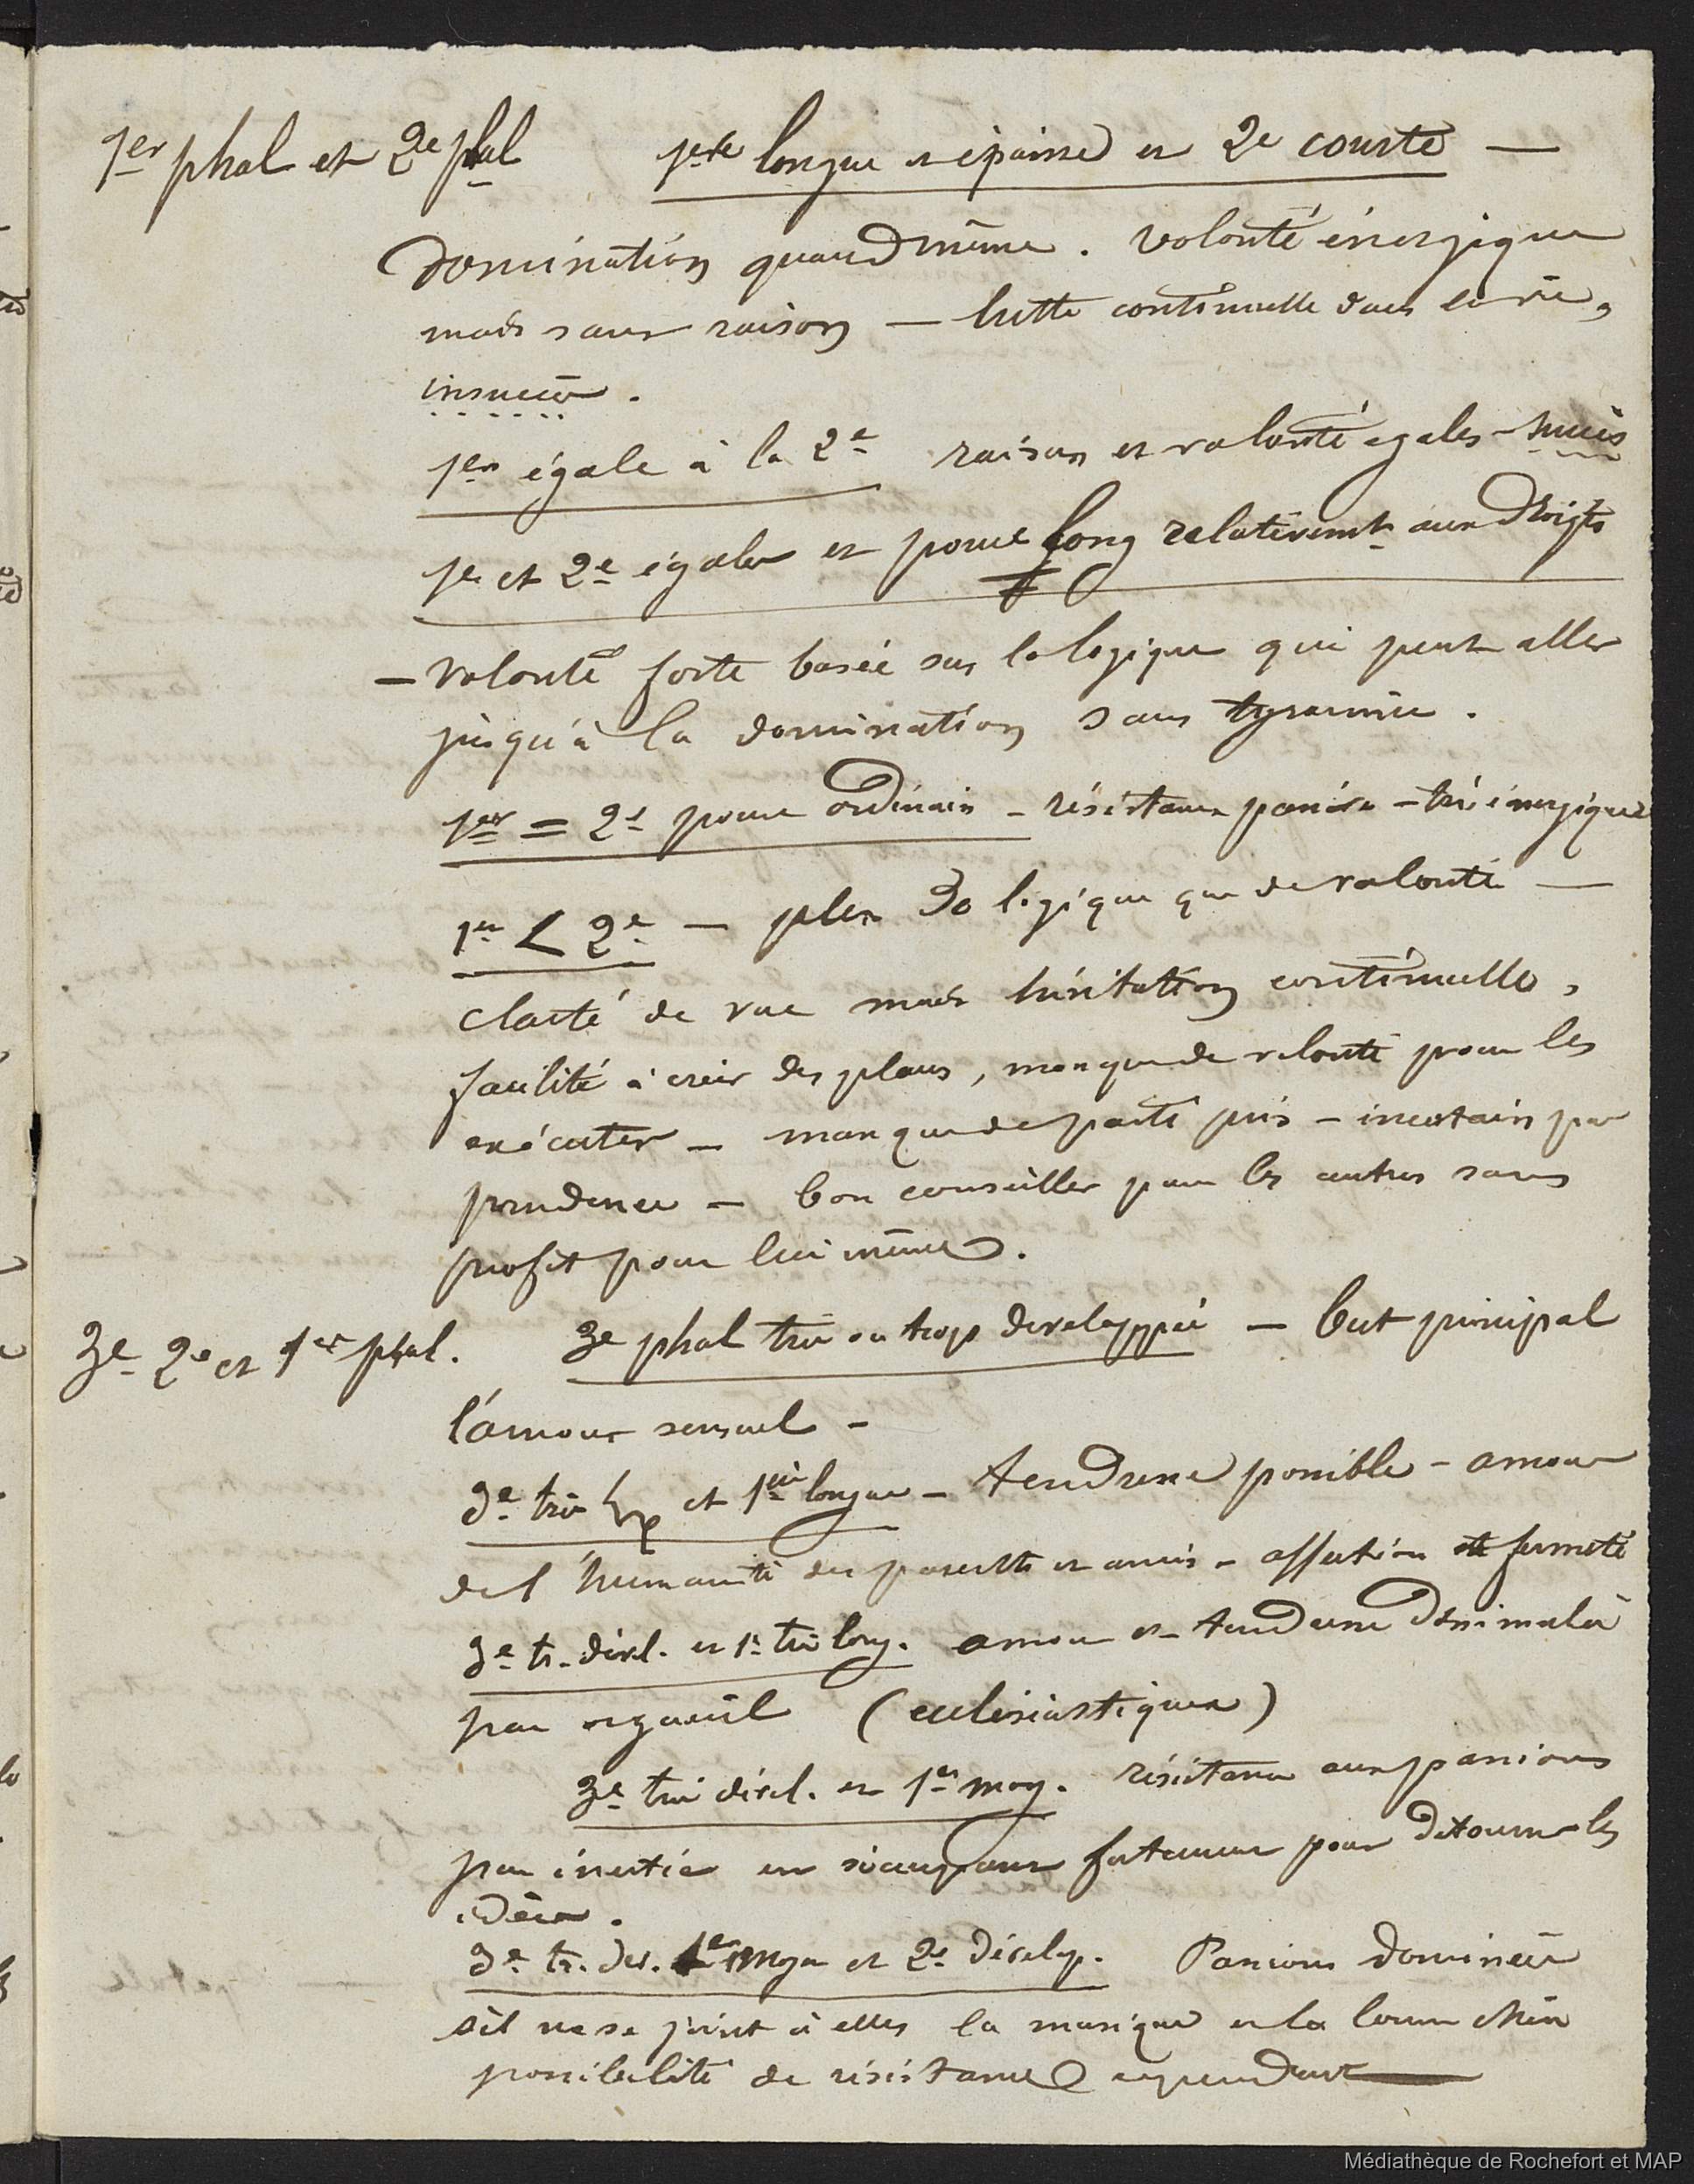 1er phal et 2e phal 1ere longue et épaisse et 2e courte —
Domination quand même. Volonté énergique
mais sans raison — lutte continuelle dans la vie,
insuccès.
1ere égale à la 2e raison et volonté egales - succès
1e et 2e égales et pouce long relativemt aux doigts
— Volonté forte basée sur la logique qui peut aller
jusqu'à la domination sans tyrannie.
1ere = 2e pouce ordinaire - résistance passive - très énergique
1ere < 2e — plus de logique que de volonté —
clarté de vue mais hésitation continuelle,
facilité à créer des plans, manque de volonté pour les
exécuter — manque de parti pris - incertain par
prudence — bon conseiller pour les autres sans
profit pour lui même.
3e 2e et 1er phal. 3e phal très ou trop développée — but principal
l'amour sensuel -
3e très et 1ere longue - tendresse possible - amour
de l'humanité des parents et amis - affection et fermeté
3e tr. dével. et 1e très long. amour et tendresse dissimulés
par orgueil (ecclésiastiques)
3e très dével. et 1ere moy. résistance aux passions
par inertie en fortement pour détourner les
idées.
3e tr. dev. 1e moyen et 2e dévelop. Passions dominées
s'il ne se joint à elles la musique et la
possibilité de résistance cependant
Médiathèque de Rochefort et MAP